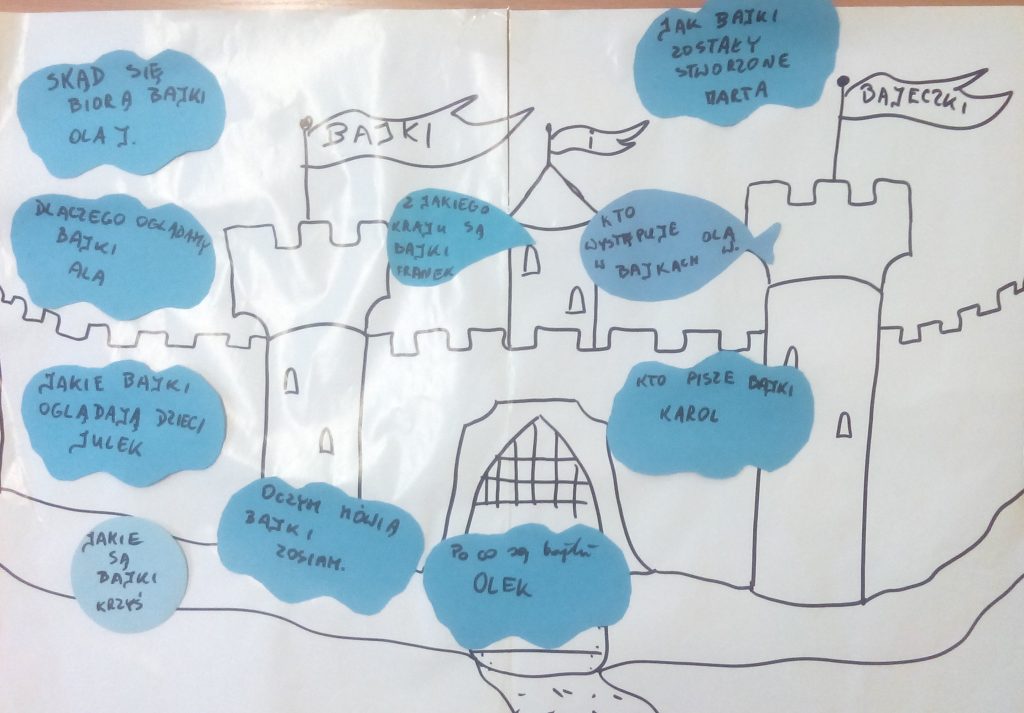 SKĄD SIĘ
BIORĄ BAJKI
OLA J.
BAJKI
i
JAK BAJKI
ZOSTAŁY
STWORZONE
MARTA
BAJECZKI
DLACZEGO OGLĄDAMY
BAJKI
ALA
Z JAKIEGO
KRAJU SĄ
BAJKI
FRANEK
KTO
WYSTĘPUJE OLA
W BAJKACH W.
JAKIE BAJKI
OGLĄDAJĄ DZIECI
JULEK
KTO PISZE BAJKI
KAROL
JAKIE
SĄ
BAJKI
KRZYŚ
OCZYM MÓWIĄ
BAJKI
ZOSIAM.
Po co są bajki
OLEK